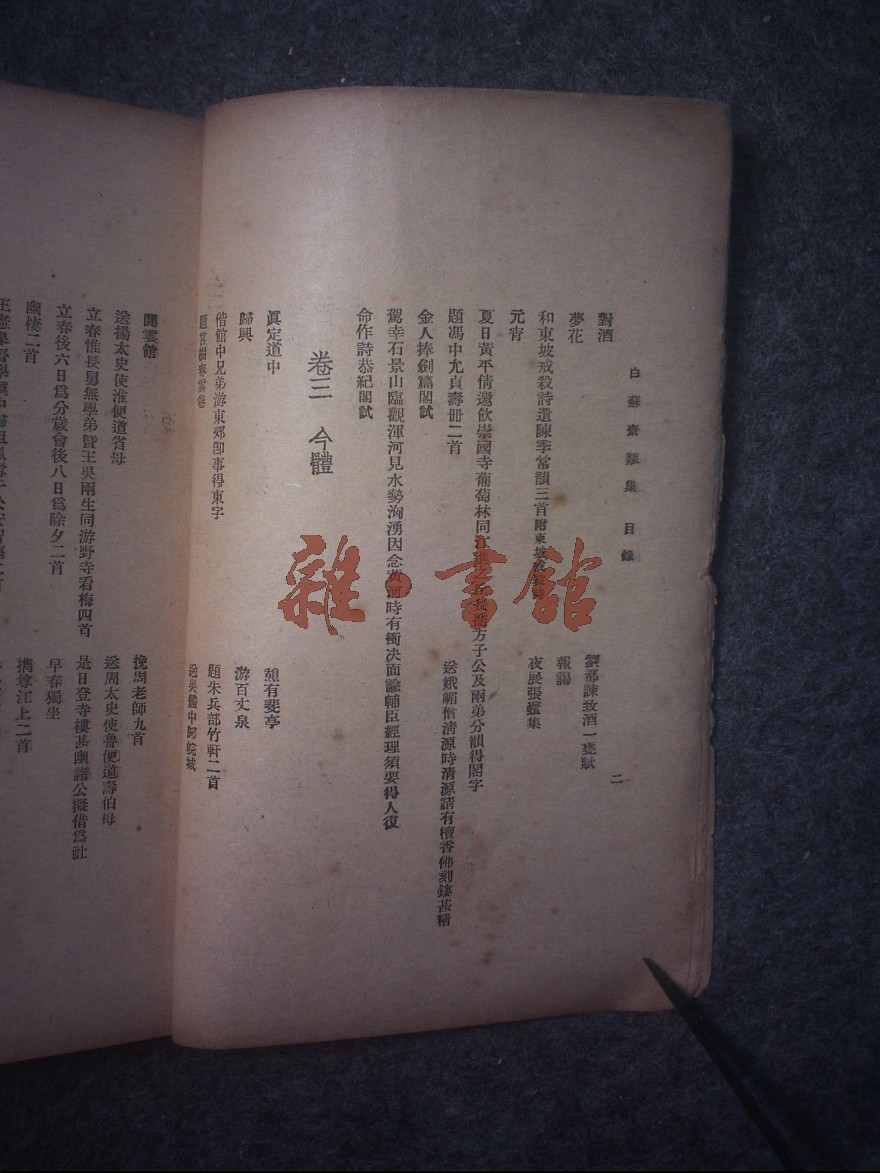 白蘇齋類集 目錄
二
對酒
劉都諫致酒一甕賦
夢花
報謁
和東坡戒殺詩遺陳季常韻三首附東坡戒殺詩
夜展張 集
元宵
夏日黃平倩邀飲崇國寺葡萄林同江進之 方子公及兩弟分韻得閣字
題馮中允貞壽冊二首
送娥嵋僧清源時清源請有檀香佛刻鏤甚精
金人捧劍篇閣試
駕幸石景山臨觀渾河見水勢洶湧因念黃河時有衝決面諭輔臣經理須要得人復
命作詩恭紀閣試
卷三 今體
眞定道中
憩有斐亭
歸興
游百丈泉
偕館中兄弟游東郊卽事得東字
題朱兵部竹軒二首
題宮樹春雲卷
送吳體中歸皖城
聞雲館
挽周老師九首
送揚太史使淮便道省母
送周太史使魯便道壽伯母
立春惟長舅無學弟暨王吳兩生同游野寺看梅四首
是日登寺樓甚幽諧公擬借爲社
立春後六日爲分歲會後八日爲除夕二首
早春獨坐
幽棲二首
攜尊江上二首
雜·書館